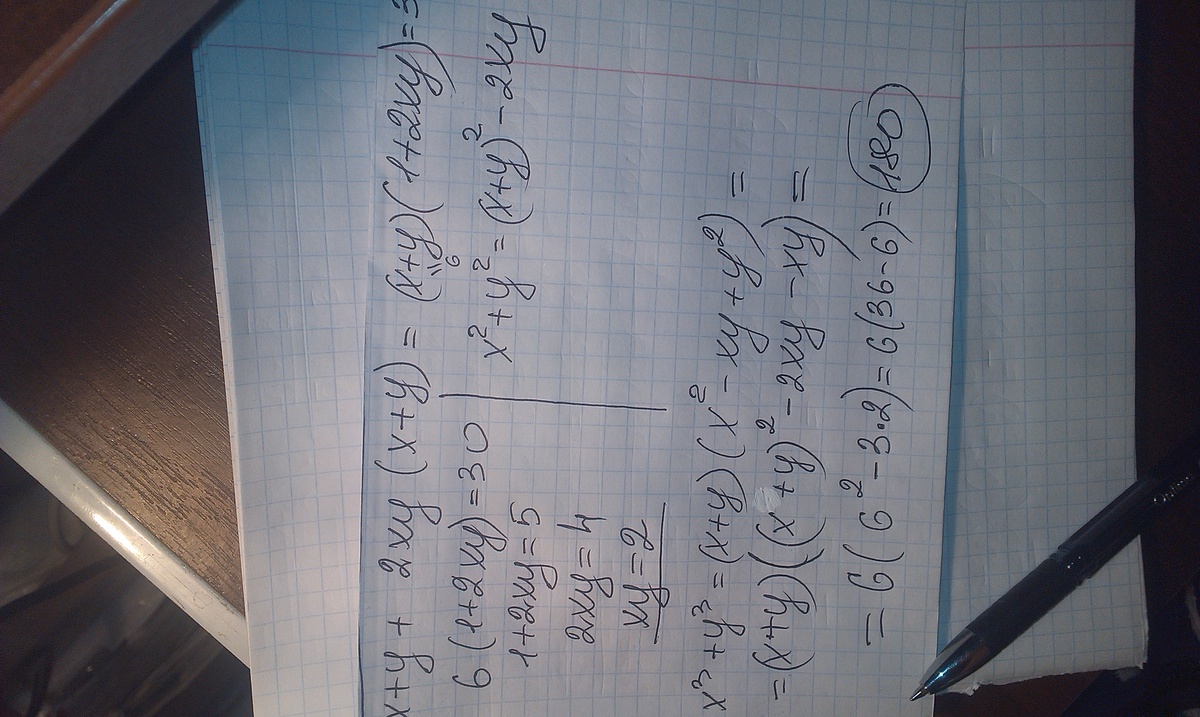 x+y+ 2xy(x+y) = (x+y)(1+2xy)=3
6
6(1+2xy)=30
x²+y²=(x+y)²-2xy
1+2xy=5
2xy=4
xy=2
x³+y³=(x+y)(x²-xy+y²)=
=(x+y)((x+y)²-2xy-xy)=
=6(6²-3·2)=6(36-6)=180